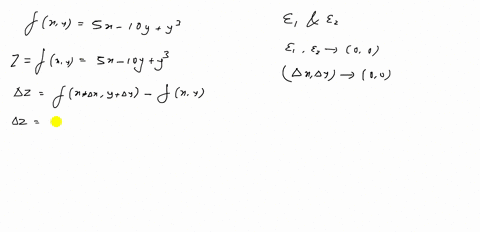 f(x,y) = 5x-10y+y³
Z = f(x,y) = 5x-10y+y³
ΔZ = f(x+Δx, y+Δy) - f(x,y)
ΔZ =
ε₁ & ε₂
ε₁, ε₂ → (0,0)
(Δx,Δy) → (0,0)